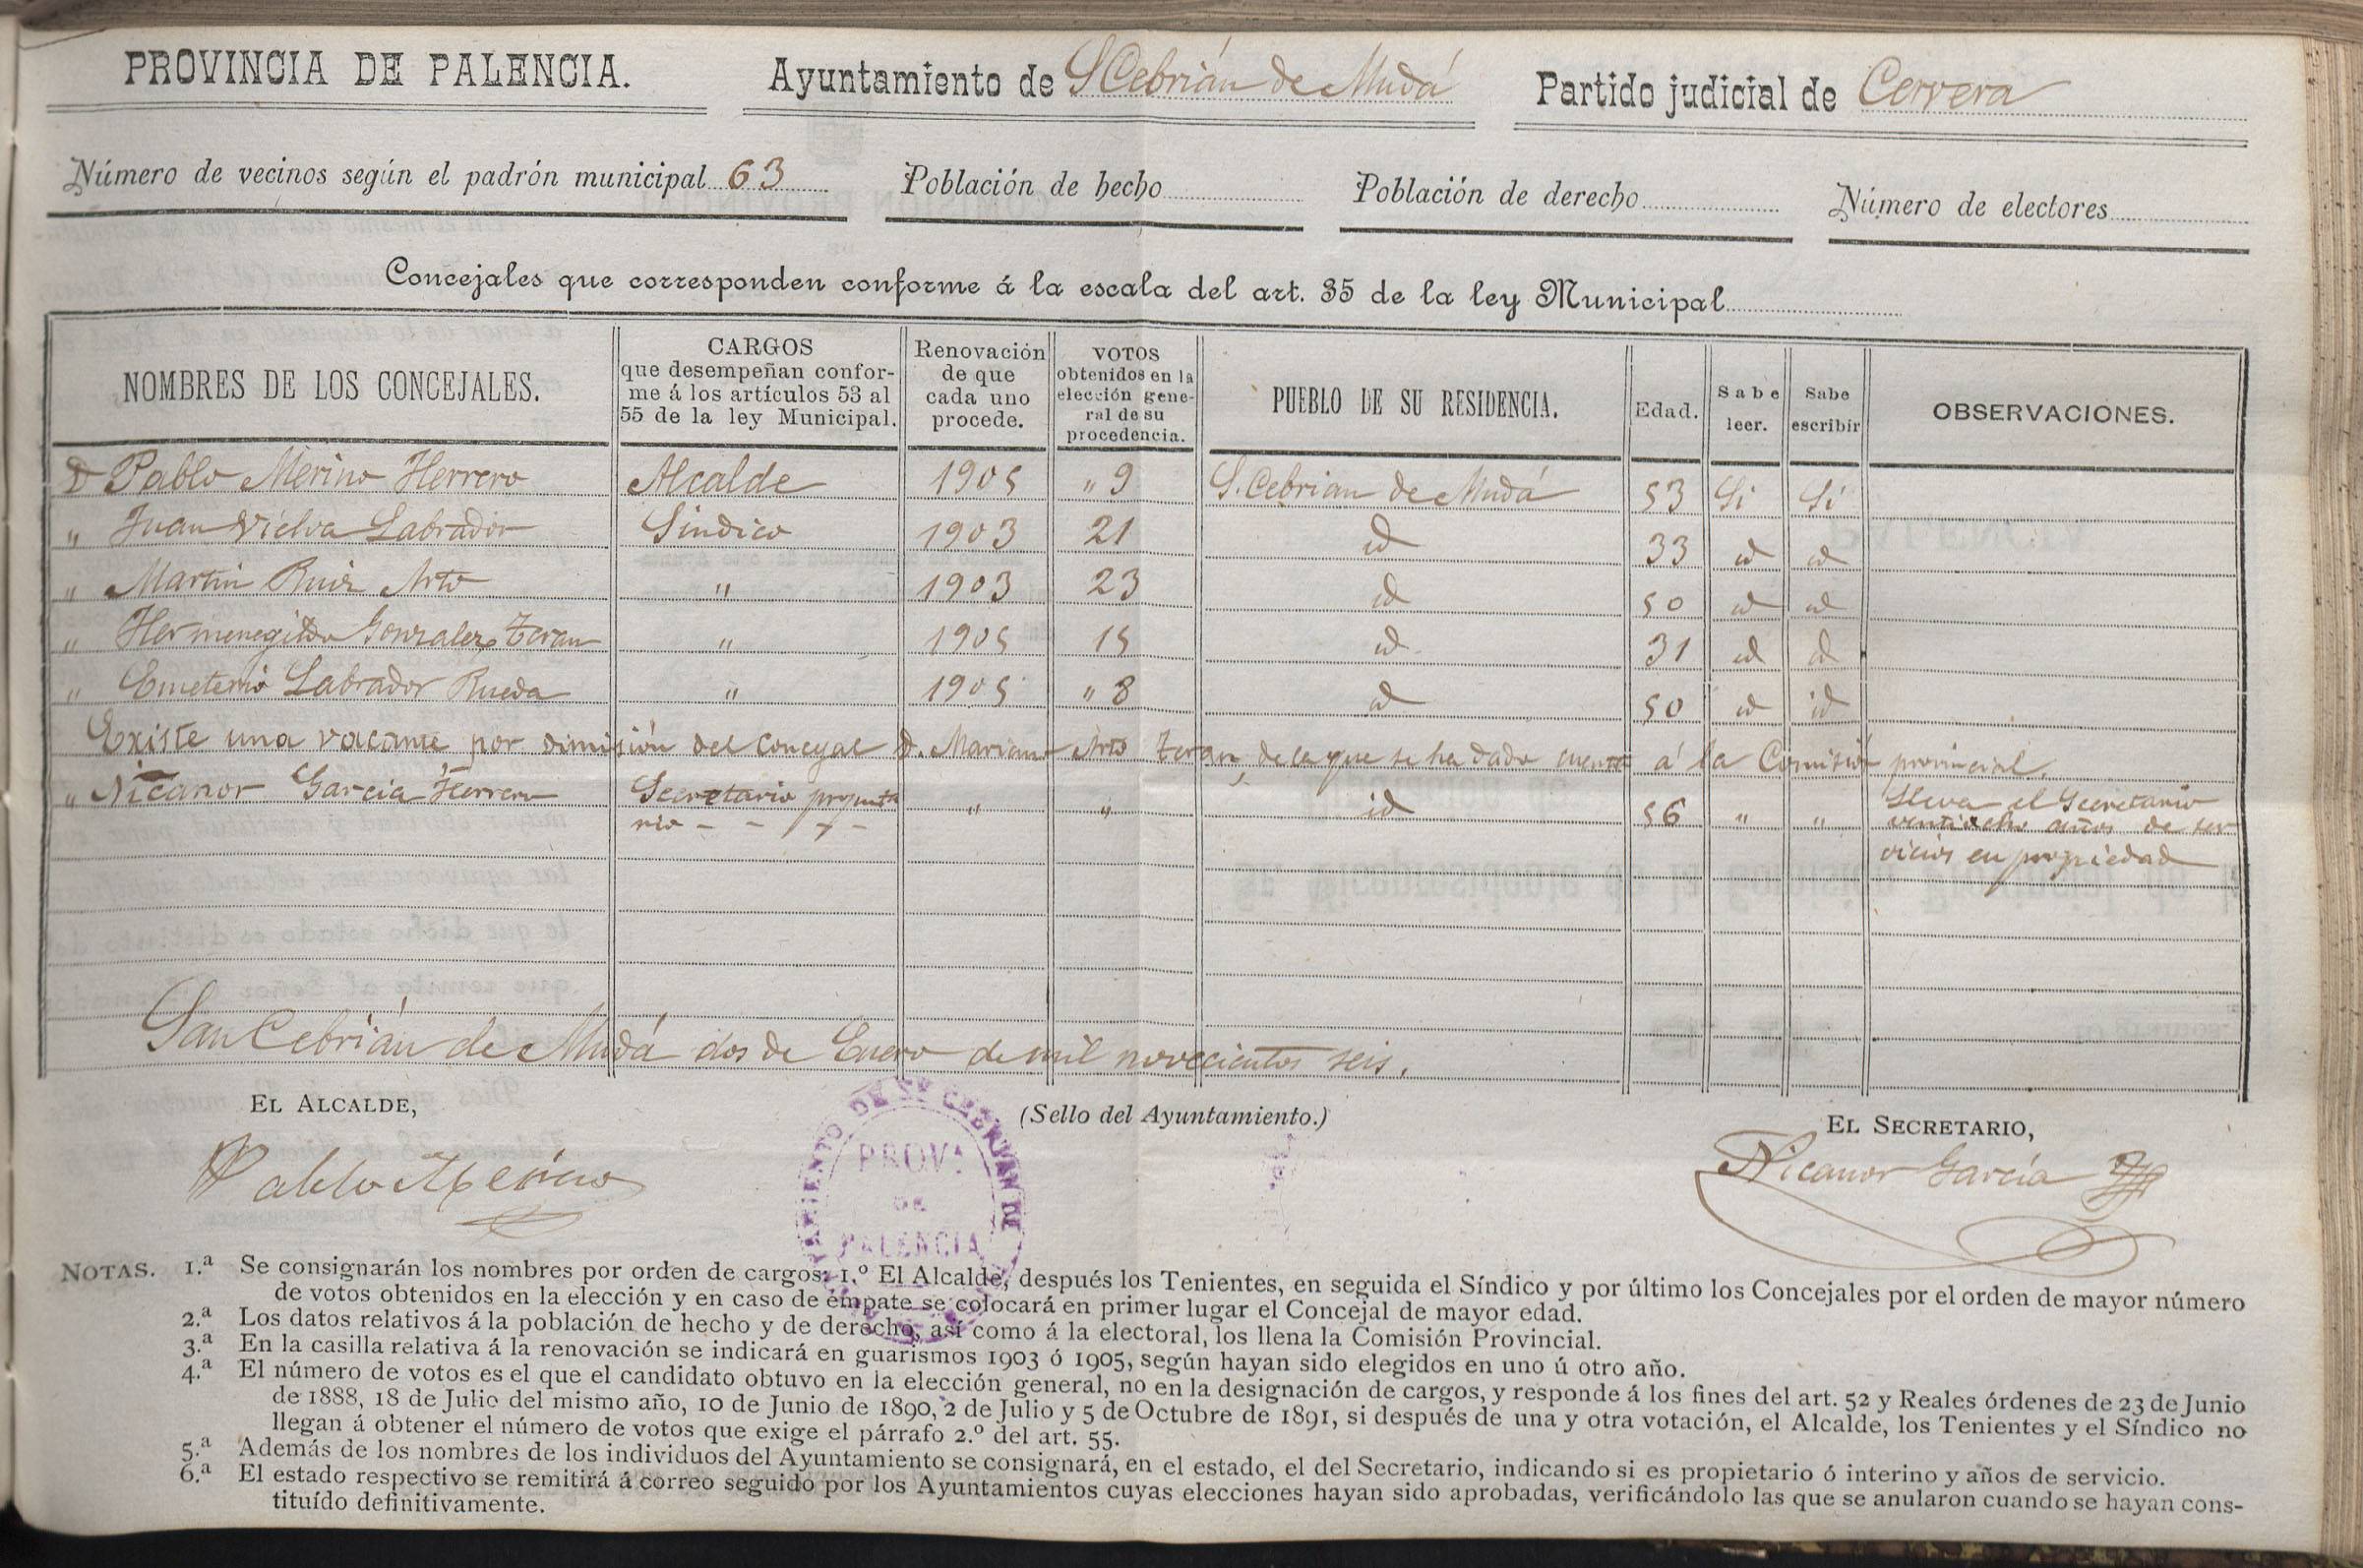 PROVINCIA DE PALENCIA. Ayuntamiento de S Cebrián de Mudá Partido judicial de Cervera
Número de vecinos según el padrón municipal 63 Población de hecho Población de derecho Número de electores
Concejales que corresponden conforme á la escala del art. 35 de la ley Municipal
NOMBRES DE LOS CONCEJALES.
CARGOS
que desempeñan confor-
me á los artículos 53 al
55 de la ley Municipal.
Renovación
de que
cada uno
procede.
VOTOS
obtenidos en la
elección gene-
ral de su
procedencia.
PUEBLO DE SU RESIDENCIA.
Edad.
Sabe
leer.
Sabe
escribir
OBSERVACIONES.
D Pablo Merino Herrero Alcalde 1905 " 9 S. Cebrian de Mudá 53 Si Sí
" Juan Vielva Labrador Síndico 1903 21 id 33 id id
" Martin Ruiz Arto " 1903 23 id 50 id id
" Hermenegildo Gonzalez Teran " 1905 15 id 31 id id
" Emeterio Labrador Rueda " 1905 " 8 id 50 id id
Existe una vacante por dimisión del concejal D. Mariano Arto Teran, de la que se ha dado cuenta á la Comisión provincial.
" Nicanor García Herrero Secretario propieta " " id 56 " " Lleva el Secretario
rio - - - - ventiocho años de ser
vicios en propiedad
San Cebrián de Mudá dos de Enero de mil novecientos seis.
EL ALCALDE, (Sello del Ayuntamiento.) EL SECRETARIO,
Pablo Merino Nicanor García
AYUNTAMIENTO DE SN CEBRIAN DE
PROVA
DE
PALENCIA
NOTAS. 1.ª Se consignarán los nombres por orden de cargos: 1.º El Alcalde, después los Tenientes, en seguida el Síndico y por último los Concejales por el orden de mayor número
de votos obtenidos en la elección y en caso de empate se colocará en primer lugar el Concejal de mayor edad.
2.ª Los datos relativos á la población de hecho y de derecho, así como á la electoral, los llena la Comisión Provincial.
3.ª En la casilla relativa á la renovación se indicará en guarismos 1903 ó 1905, según hayan sido elegidos en uno ú otro año.
4.ª El número de votos es el que el candidato obtuvo en la elección general, no en la designación de cargos, y responde á los fines del art. 52 y Reales órdenes de 23 de Junio
de 1888, 18 de Julio del mismo año, 10 de Junio de 1890, 2 de Julio y 5 de Octubre de 1891, si después de una y otra votación, el Alcalde, los Tenientes y el Síndico no
llegan á obtener el número de votos que exige el párrafo 2.º del art. 55.
5.ª Además de los nombres de los individuos del Ayuntamiento se consignará, en el estado, el del Secretario, indicando si es propietario ó interino y años de servicio.
6.ª El estado respectivo se remitirá á correo seguido por los Ayuntamientos cuyas elecciones hayan sido aprobadas, verificándolo las que se anularon cuando se hayan cons-
tituído definitivamente.